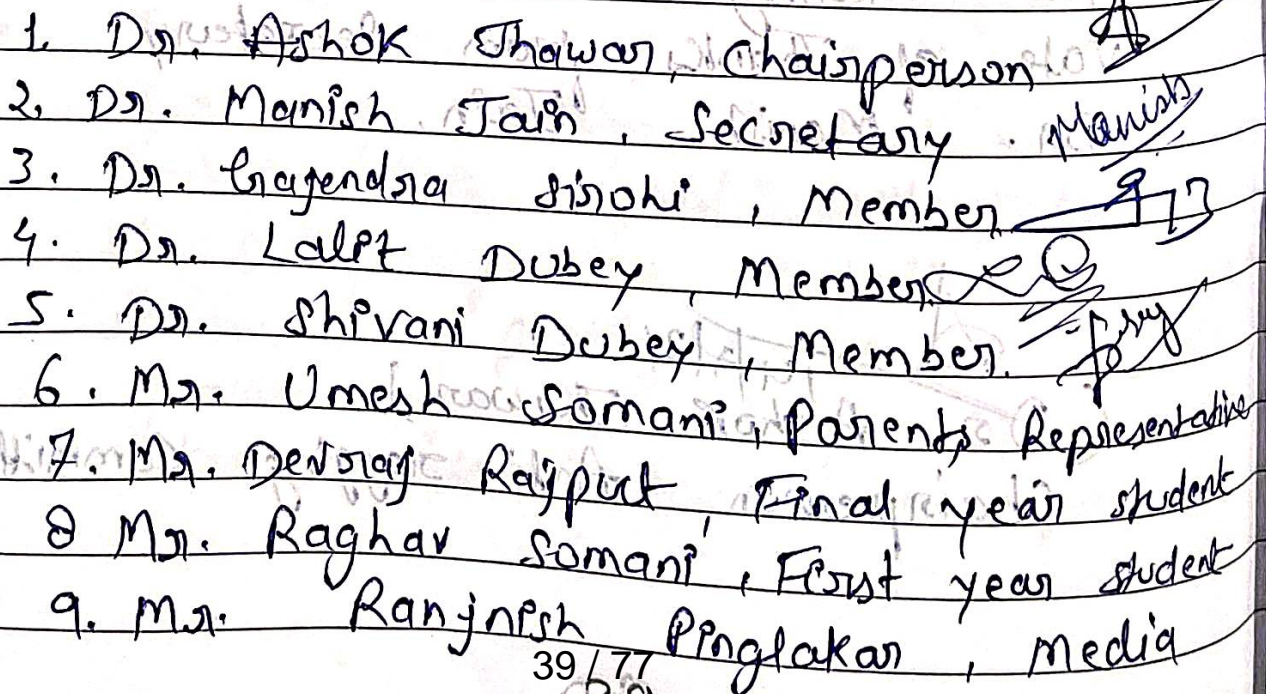 1. Dr. Ashok Jhawar, Chairperson
2. Dr. Manish Jain, Secretary. Manish
3. Dr. Gajendra Sirohi, Member
4. Dr. Lalit Dubey, Member
5. Dr. Shivani Dubey, Member.
6. Mr. Umesh Somani, Parents Representative
7. Mr. Devraj Rajput, Final year student
8 Mr. Raghav Somani, First year student
9. Mr. Ranjnish Pinglakar, Media
39/77